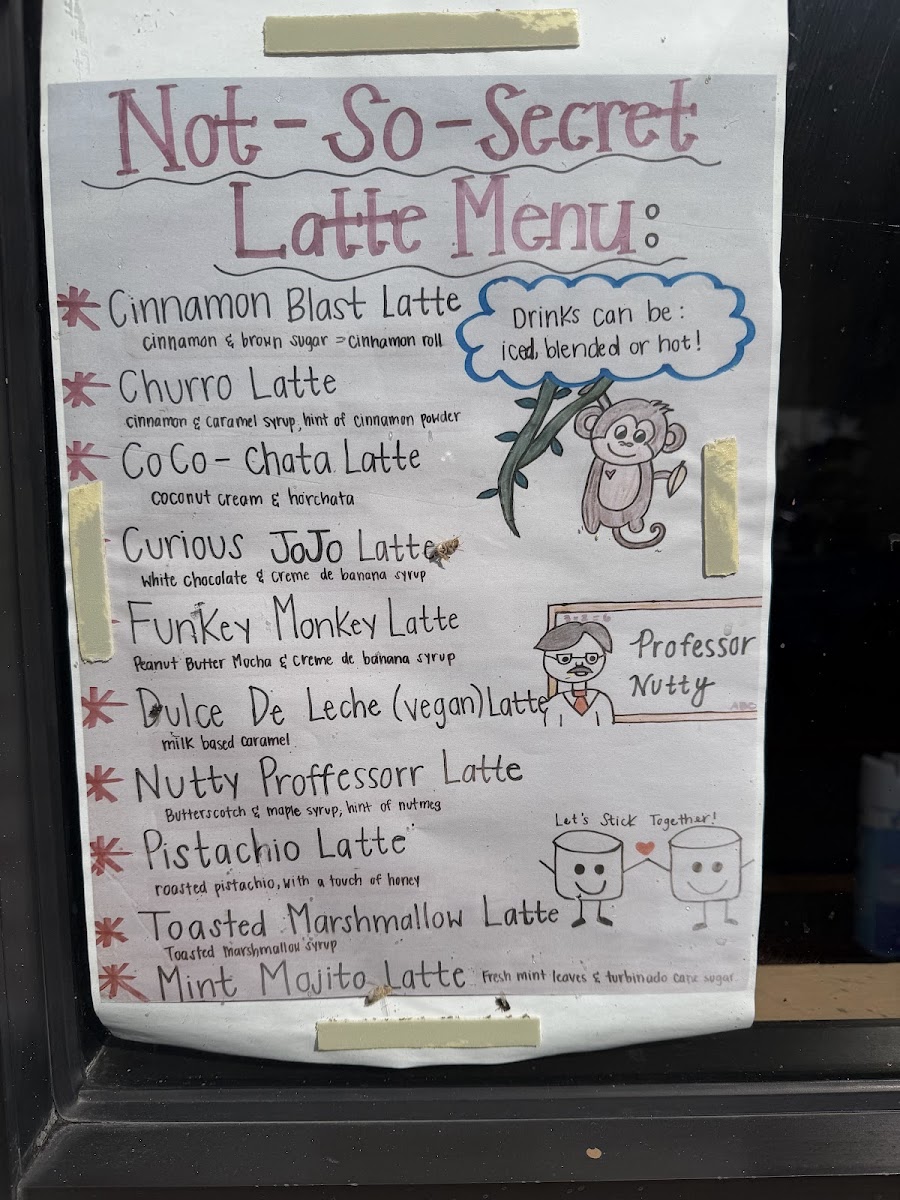 Not-So-Secret
Latte Menu:
Cinnamon Blast Latte
cinnamon & brown sugar = cinnamon roll
Drinks can be:
iced, blended or hot!
Churro Latte
cinnamon & caramel syrup, hint of cinnamon powder
CoCo-Chata Latte
coconut cream & horchata
Curious JoJo Latte
White chocolate & creme de banana syrup
Funkey Monkey Latte
Peanut Butter Mocha & creme de banana syrup
Professor
Nutty
ABC
Dulce De Leche (vegan) Latte
milk based caramel
Nutty Proffessorr Latte
Butterscotch & maple syrup, hint of nutmeg
Let's Stick Together!
Pistachio Latte
roasted pistachio, with a touch of honey
Toasted Marshmallow Latte
Toasted marshmallow syrup
Mint Mojito Latte Fresh mint leaves & turbinado cane sugar